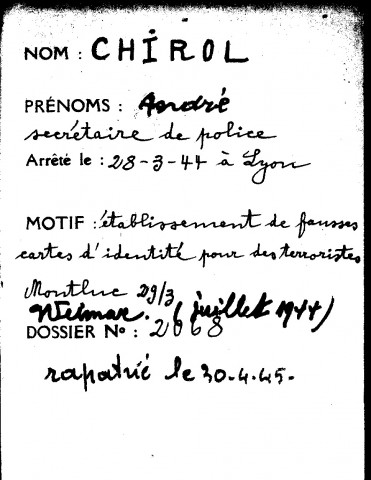 NOM : CHIROL
PRÉNOMS : André
secrétaire de police
Arrêté le : 28-3-44 à Lyon
MOTIF : établissement de fausses
cartes d'identité pour des terroristes
Montluc 29/3
Weimar. (juillet 1944)
DOSSIER No : 2068
rapatrié le 30.4.45.